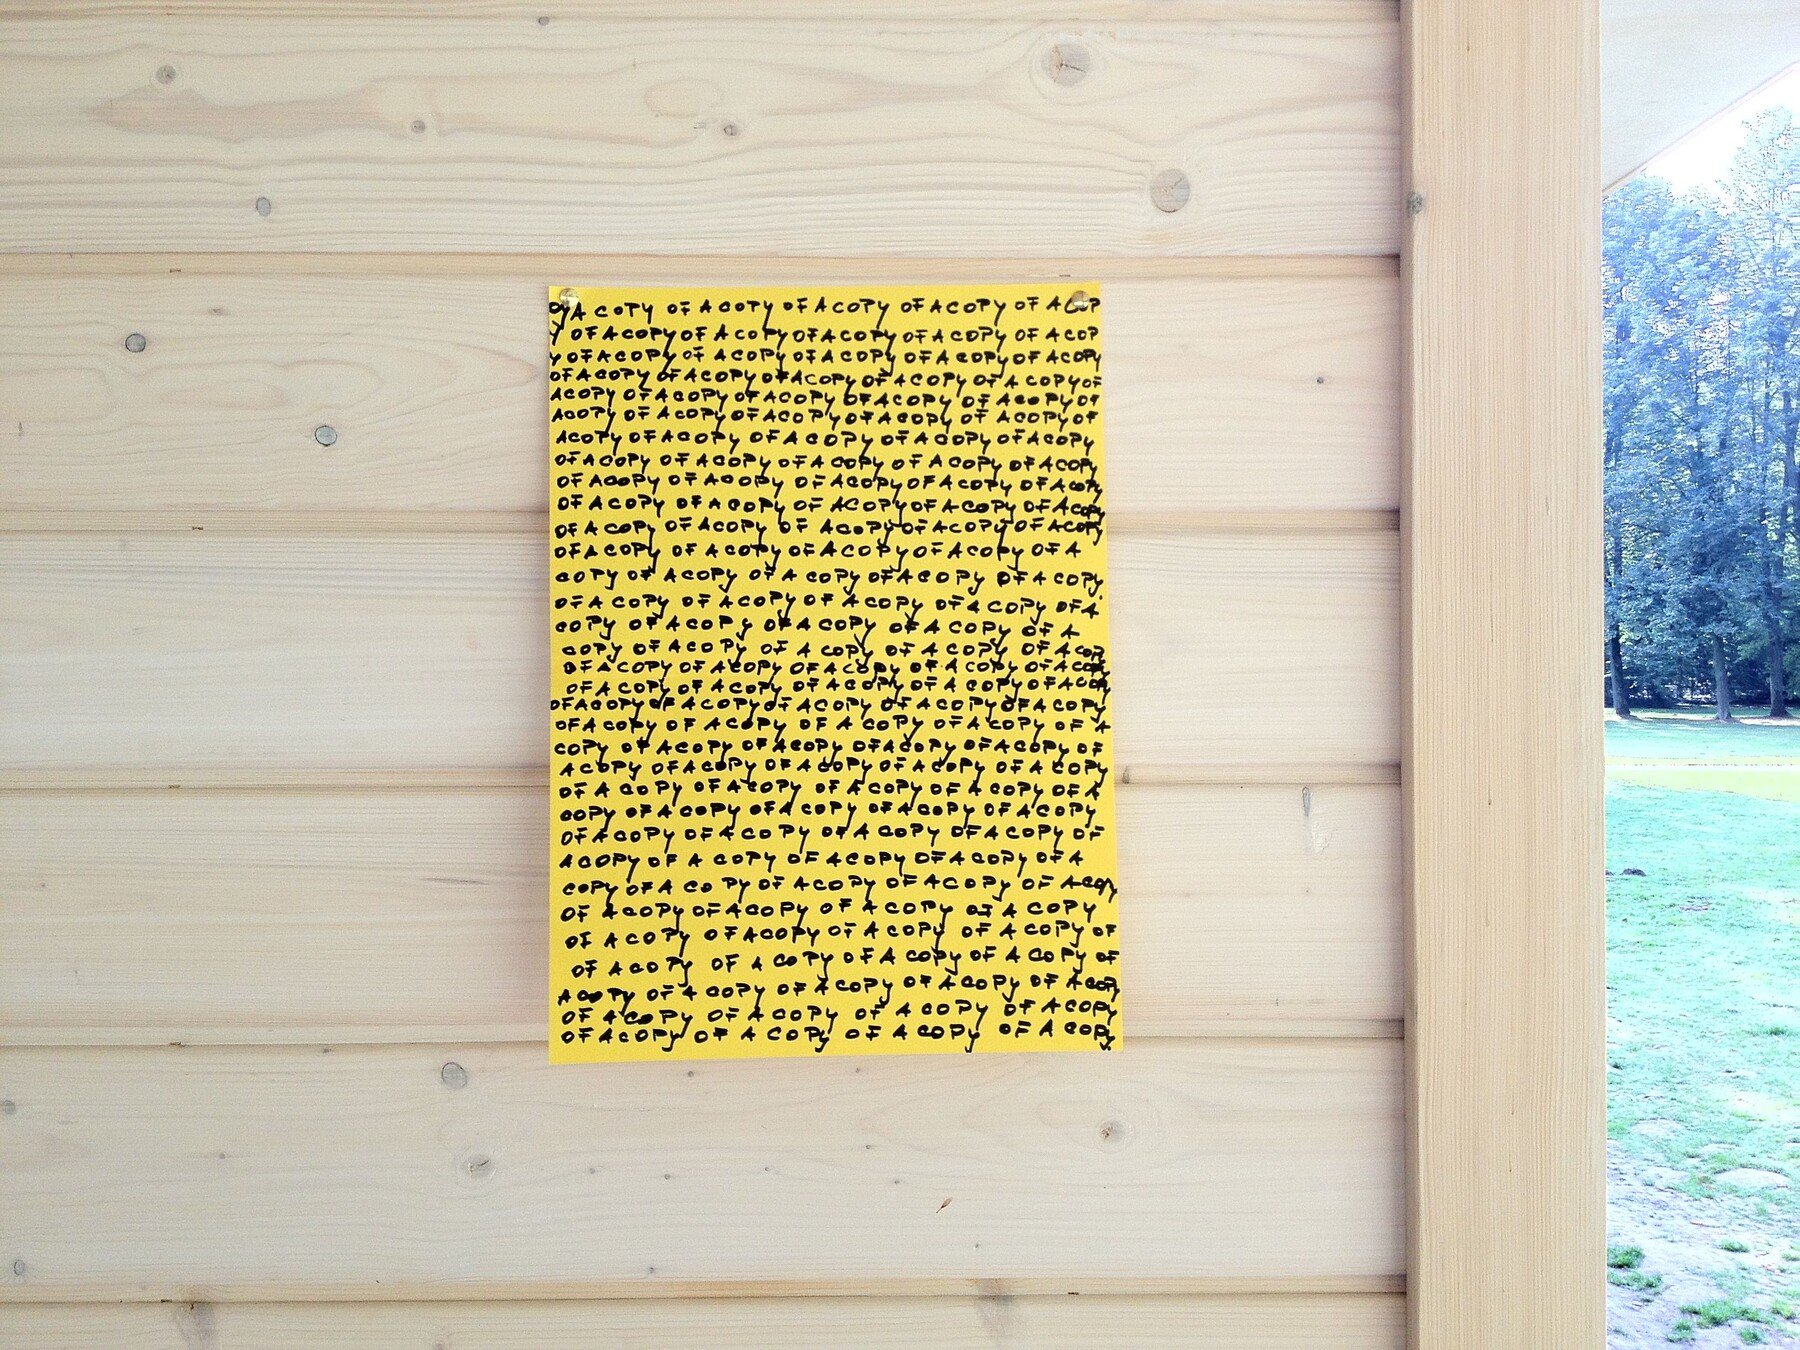 OF A COPY OF A COPY OF A COPY OF A COPY OF A COP
Y OF A COPY OF A COPY OF A COPY OF A COPY OF A COP
Y OF A COPY OF A COPY OF A COPY OF A COPY OF A COPY
OF A COPY OF A COPY OF A COPY OF A COPY OF A COPY OF
A COPY OF A COPY OF A COPY OF A COPY OF A COPY OF
A COPY OF A COPY OF A COPY OF A COPY OF A COPY OF
A COPY OF A COPY OF A COPY OF A COPY OF A COPY
OF A COPY OF A COPY OF A COPY OF A COPY OF A COPY
OF A COPY OF A COPY OF A COPY OF A COPY OF A COPY
OF A COPY OF A COPY OF A COPY OF A COPY OF A COPY
OF A COPY OF A COPY OF A COPY OF A COPY OF A COPY
OF A COPY OF A COPY OF A COPY OF A COPY OF A
COPY OF A COPY OF A COPY OF A COPY OF A COPY
OF A COPY OF A COPY OF A COPY OF A COPY OF A
COPY OF A COPY OF A COPY OF A COPY OF A
COPY OF A COPY OF A COPY OF A COPY OF A COPY
OF A COPY OF A COPY OF A COPY OF A COPY OF A COPY
OF A COPY OF A COPY OF A COPY OF A COPY OF A COPY
OF A COPY OF A COPY OF A COPY OF A COPY OF A COPY
OF A COPY OF A COPY OF A COPY OF A COPY OF A
COPY OF A COPY OF A COPY OF A COPY OF A COPY OF
A COPY OF A COPY OF A COPY OF A COPY OF A COPY
OF A COPY OF A COPY OF A COPY OF A COPY OF A
COPY OF A COPY OF A COPY OF A COPY OF A COPY
OF A COPY OF A COPY OF A COPY OF A COPY OF
A COPY OF A COPY OF A COPY OF A COPY OF A
COPY OF A COPY OF A COPY OF A COPY OF A COPY
OF A COPY OF A COPY OF A COPY OF A COPY
OF A COPY OF A COPY OF A COPY OF A COPY OF
OF A COPY OF A COPY OF A COPY OF A COPY OF
A COPY OF A COPY OF A COPY OF A COPY OF A COPY
OF A COPY OF A COPY OF A COPY OF A COPY
OF A COPY OF A COPY OF A COPY OF A COPY